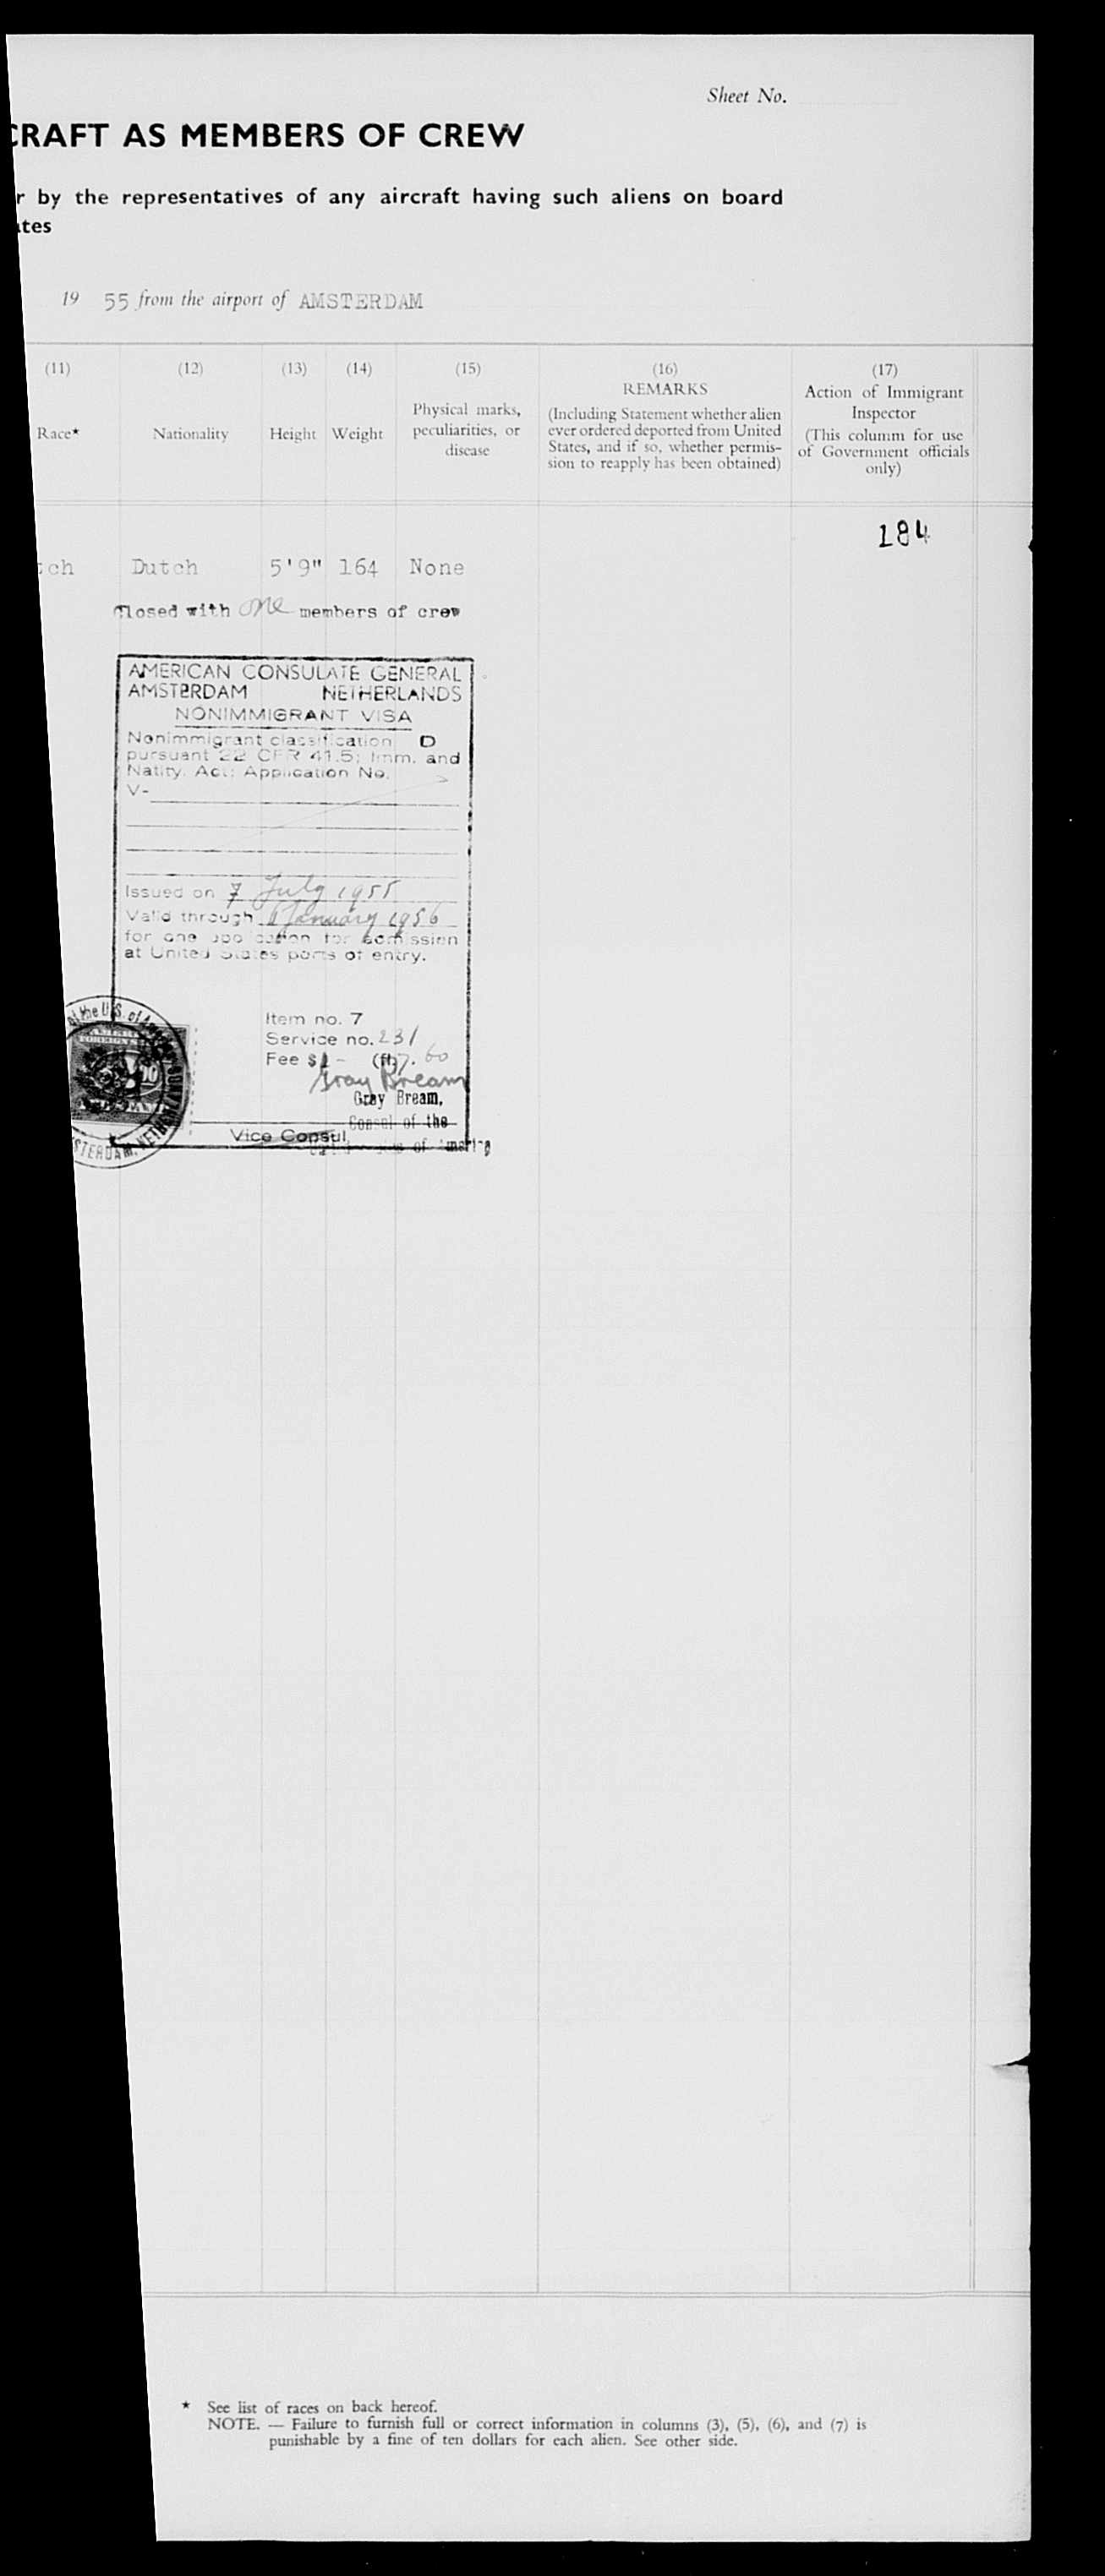 Sheet No.
CRAFT AS MEMBERS OF CREW
r by the representatives of any aircraft having such aliens on board
ates
19 55 from the airport of AMSTERDAM
(11) (12) (13) (14) (15) (16) (17)
Race* Nationality Height Weight
Physical marks,
peculiarities, or
disease
REMARKS
(Including Statement whether alien
ever ordered deported from United
States, and if so, whether permis-
sion to reapply has been obtained)
Action of Immigrant
Inspector
(This column for use
of Government officials
only)
184
tch Dutch 5'9" 164 None
Closed with one members of crew
AMERICAN CONSULATE GENERAL
AMSTERDAM NETHERLANDS
NONIMMIGRANT VISA
Nonimmigrant classification D
pursuant 22 CFR 41.5; Imm. and
Natlty. Act; Application No.
V-
Issued on 7 July 1955
Valid through 6 January 1956
for one application for admission
at United States ports of entry.
of the U.S. of
Item no. 7
Service no. 231
Fee $ - (fl) 7.60
Gray Bream
Gray Bream,
Consul of the
Vice Consul
of America
STERDAM, NETHE
* See list of races on back hereof.
NOTE. — Failure to furnish full or correct information in columns (3), (5), (6), and (7) is
punishable by a fine of ten dollars for each alien. See other side.